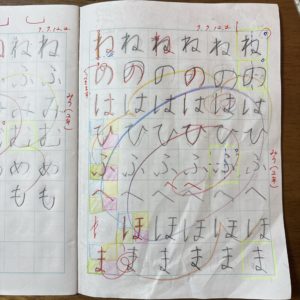 ねのはひふへほま
ねのはひふへほま
ねのはひふへほま
ねのはひふへほま
ねのはひふへほま
ねのはひふま
ねふみむめも
ねふみむめも